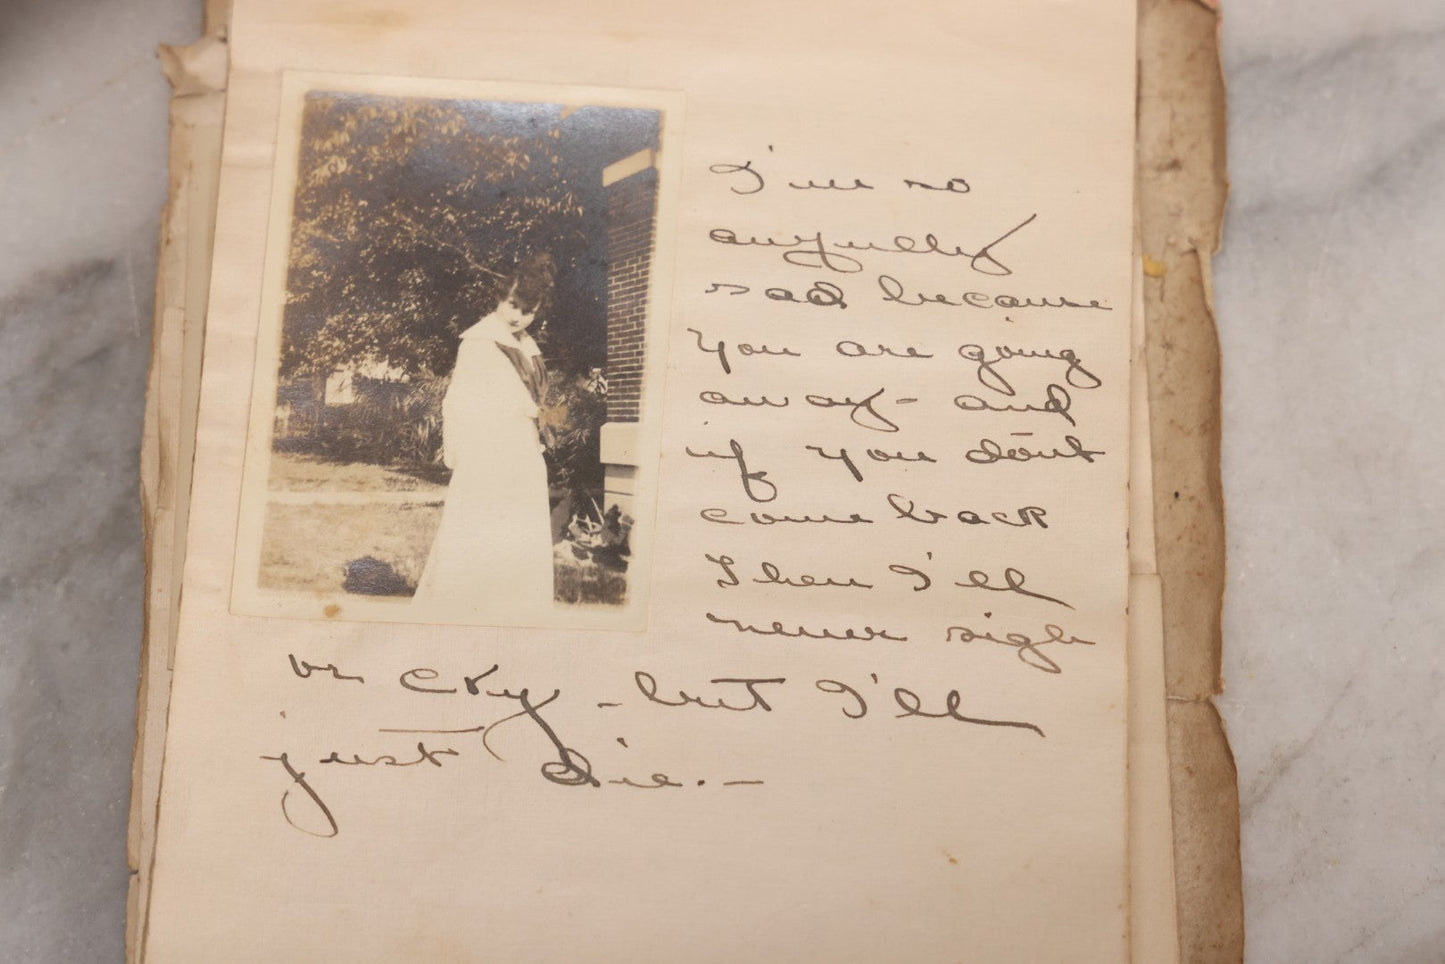 I'm so
awfully
sad because
you are going
away - and
if you don't
come back
Then I'll
never sigh
or cry - but I'll
just die. -